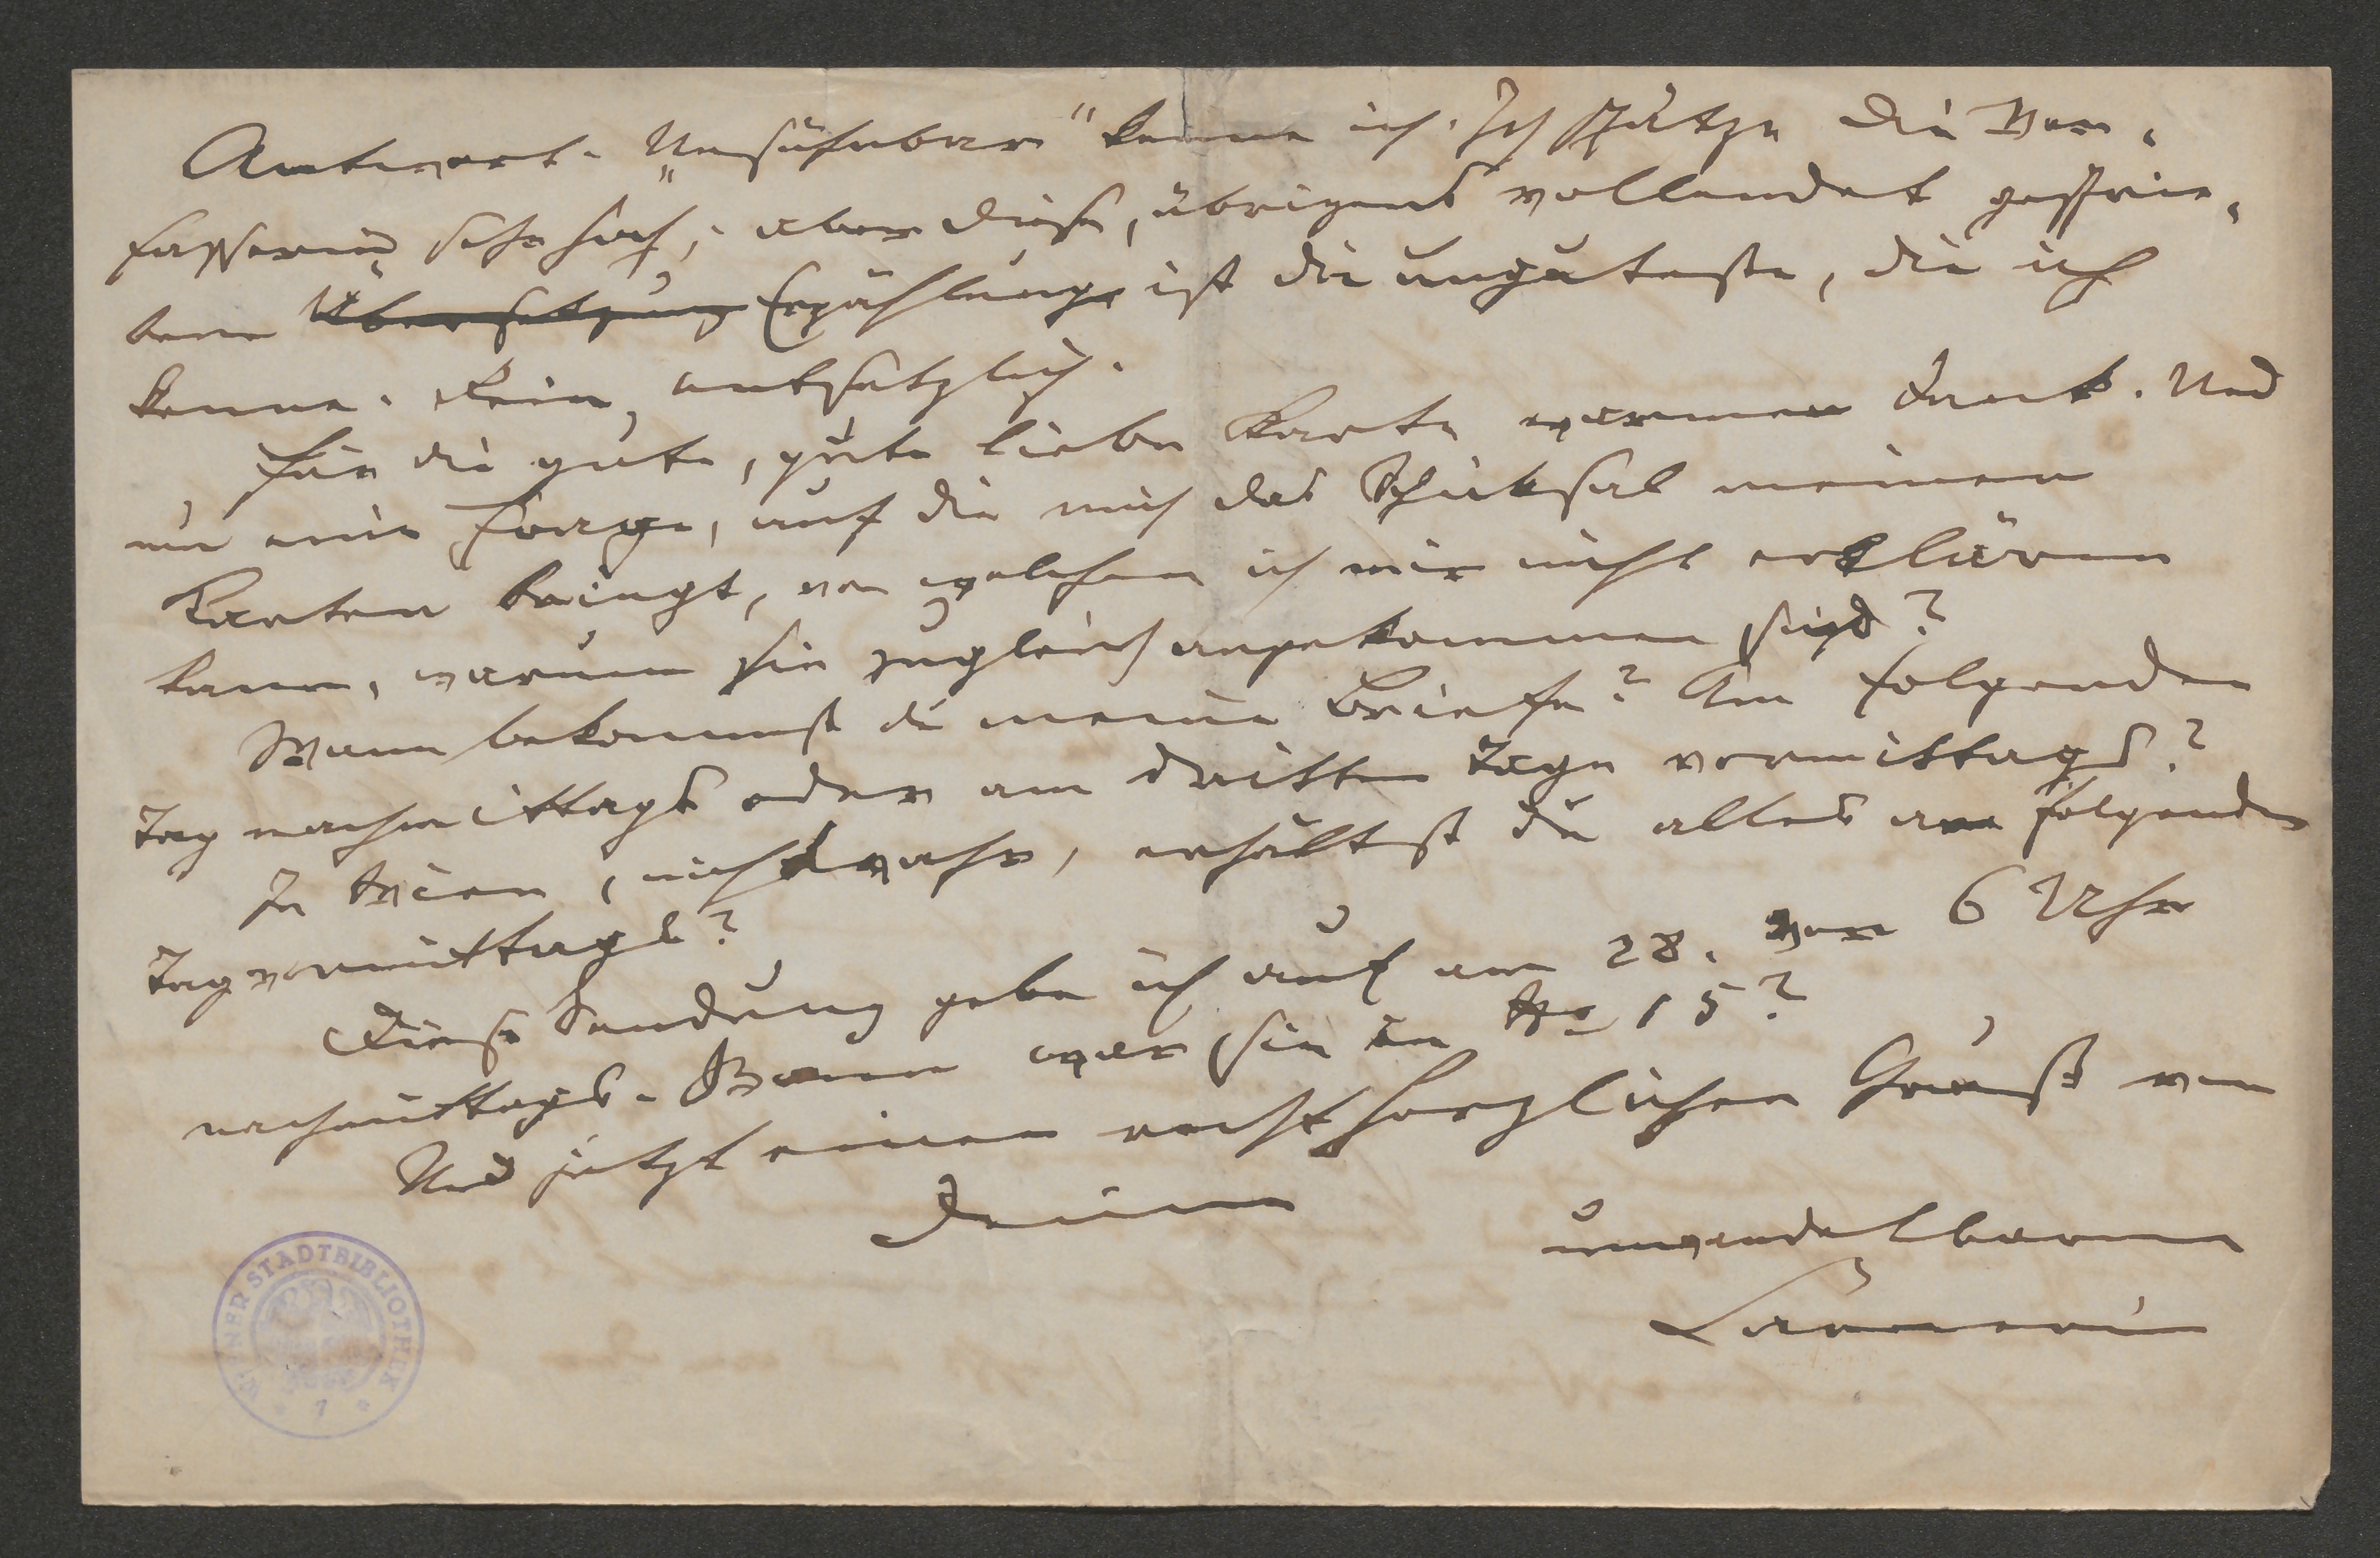 Antwort. „Unsühnbar“ kenne ich. Ich schätze die Ver-
fasserin sehr hoch; aber diese, übrigens vollendet geschrie-
bene Übersetzung Erzählung ist die unguteste, die ich
kenne. Rein entsetzlich.
Für die gute, gute liebe Karte warmen Dank. Und
nur eine Frage, auf die mich das Schicksal meiner
Karten bringt, von welchen ich mir nicht erklären
kann, warum sie zugleich angekommen sind?
Wann bekommst du meine Briefe? Am folgenden
Tag nachmittags oder am dritten Tage vormittags?
In Wien, nicht wahr, erhältst du alles am folgenden
Tag vormittags?
Diese Sendung gebe ich auf am 28. vor 6 Uhr
nachmittags. Wann war sie in No 15?
Und jetzt einen recht herzlichen Gruß von
Deinem
unwandelbaren
WIENER STADTBIBLIOTHEK